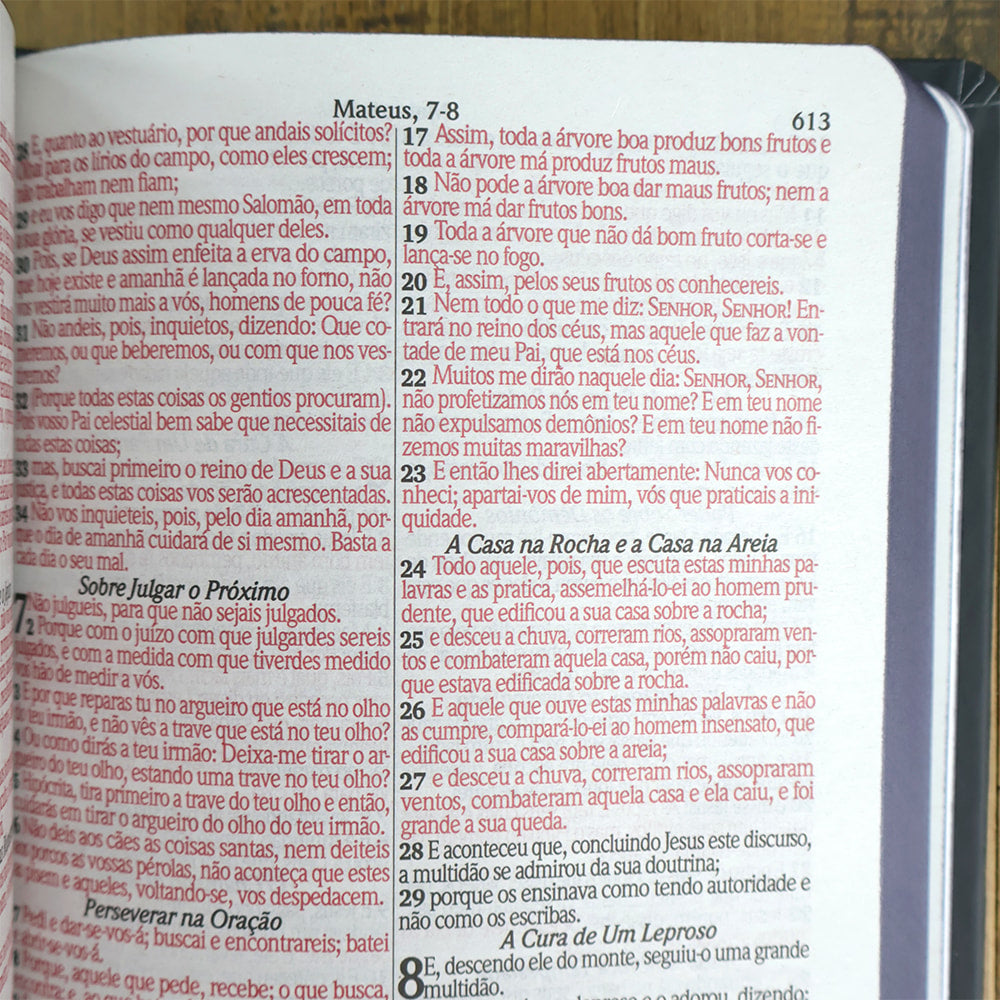 Mateus, 7-8
613
28 E, quanto ao vestuário, por que andais solícitos?
Olhai para os lírios do campo, como eles crescem;
não trabalham nem fiam;
29 e eu vos digo que nem mesmo Salomão, em toda
a sua glória, se vestiu como qualquer deles.
30 Pois, se Deus assim enfeita a erva do campo,
que hoje existe e amanhã é lançada no forno, não
vos vestirá muito mais a vós, homens de pouca fé?
31 Não andeis, pois, inquietos, dizendo: Que co-
meremos, ou que beberemos, ou com que nos ves-
tiremos?
32 (Porque todas estas coisas os gentios procuram).
Pois vosso Pai celestial bem sabe que necessitais de
todas estas coisas;
33 mas, buscai primeiro o reino de Deus e a sua
justiça, e todas estas coisas vos serão acrescentadas.
34 Não vos inquieteis, pois, pelo dia amanhã, por-
que o dia de amanhã cuidará de si mesmo. Basta a
cada dia o seu mal.
Sobre Julgar o Próximo
7 Não julgueis, para que não sejais julgados.
2 Porque com o juízo com que julgardes sereis
julgados, e com a medida com que tiverdes medido
vos hão de medir a vós.
3 E por que reparas tu no argueiro que está no olho
do teu irmão, e não vês a trave que está no teu olho?
4 Ou como dirás a teu irmão: Deixa-me tirar o ar-
gueiro do teu olho, estando uma trave no teu olho?
5 Hipócrita, tira primeiro a trave do teu olho e então,
cuidarás em tirar o argueiro do olho do teu irmão.
6 Não deis aos cães as coisas santas, nem deiteis
aos porcos as vossas pérolas, não aconteça que estes
as pisem e aqueles, voltando-se, vos despedacem.
Perseverar na Oração
7 Pedi e dar-se-vos-á; buscai e encontrareis; batei
e abrir-se-vos-á.
8 Porque, aquele que pede, recebe; o que busca,
encontra; e, ao que
17 Assim, toda a árvore boa produz bons frutos e
toda a árvore má produz frutos maus.
18 Não pode a árvore boa dar maus frutos; nem a
árvore má dar frutos bons.
19 Toda a árvore que não dá bom fruto corta-se e
lança-se no fogo.
20 E, assim, pelos seus frutos os conhecereis.
21 Nem todo o que me diz: SENHOR, SENHOR! En-
trará no reino dos céus, mas aquele que faz a von-
tade de meu Pai, que está nos céus.
22 Muitos me dirão naquele dia: SENHOR, SENHOR,
não profetizamos nós em teu nome? E em teu nome
não expulsamos demônios? E em teu nome não fi-
zemos muitas maravilhas?
23 E então lhes direi abertamente: Nunca vos co-
nheci; apartai-vos de mim, vós que praticais a ini-
quidade.
A Casa na Rocha e a Casa na Areia
24 Todo aquele, pois, que escuta estas minhas pa-
lavras e as pratica, assemelhá-lo-ei ao homem pru-
dente, que edificou a sua casa sobre a rocha;
25 e desceu a chuva, correram rios, assopraram ven-
tos e combateram aquela casa, porém não caiu, por-
que estava edificada sobre a rocha.
26 E aquele que ouve estas minhas palavras e não
as cumpre, compará-lo-ei ao homem insensato, que
edificou a sua casa sobre a areia;
27 e desceu a chuva, correram rios, assopraram
ventos, combateram aquela casa e ela caiu, e foi
grande a sua queda.
28 E aconteceu que, concluindo Jesus este discurso,
a multidão se admirou da sua doutrina;
29 porque os ensinava como tendo autoridade e
não como os escribas.
A Cura de Um Leproso
8 E, descendo ele do monte, seguiu-o uma grande
multidão.
leproso e o adorou, dizendo: